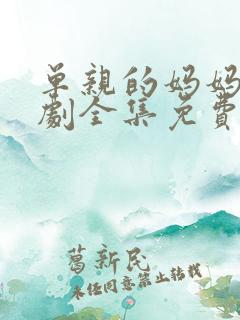 单親的妈妈
劇全集免費
葛新民
未经同意禁止转载